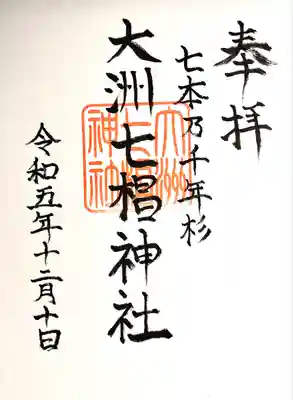 奉拝
七本乃千年杉
大洲七椙神社
令和五年十二月十日
大洲
神社